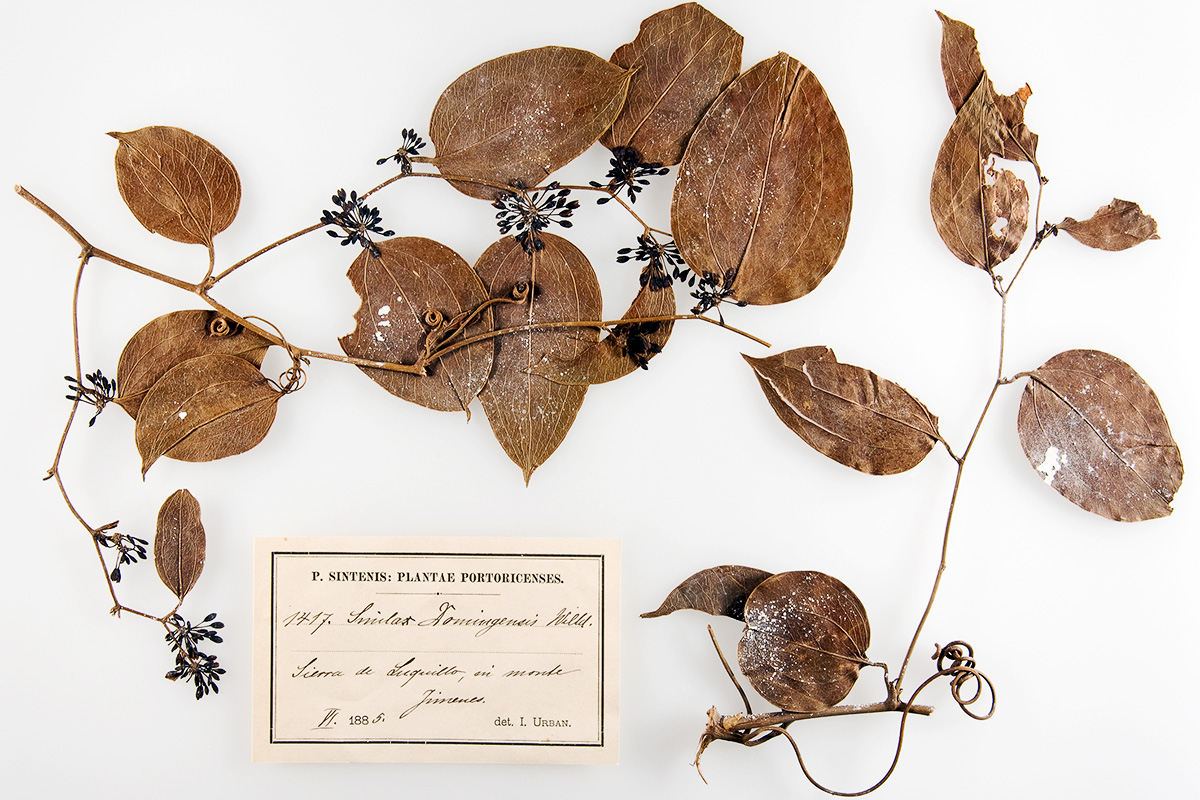 P. SINTENIS: PLANTAE PORTORICENSES.
1417. Smilax Domingensis Willd.
Sierra de Luquillo, in monte
Jimenes.
VI. 1885. det. I. URBAN.